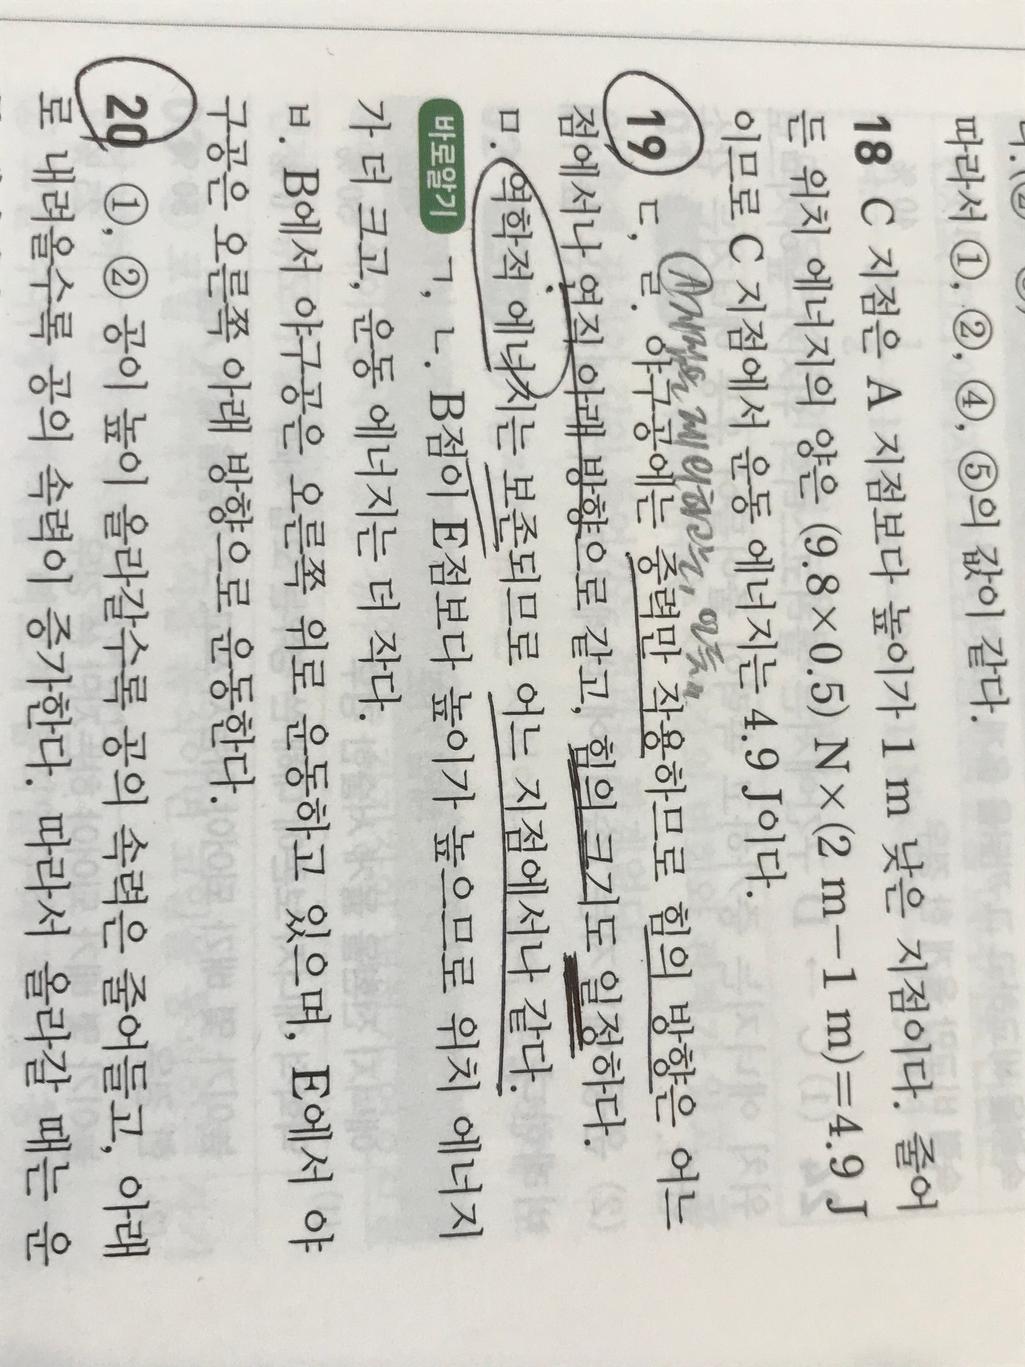 따라서 ①, ②, ④, ⑤의 값이 같다.
18 C 지점은 A 지점보다 높이가 1 m 낮은 지점이다. 줄어
든 위치 에너지의 양은 (9.8×0.5) N×(2 m－1 m)=4.9 J
이므로 C 지점에서 운동 에너지는 4.9 J이다.
19 ㄷ, ㄹ. 야구공에는 중력만 작용하므로 힘의 방향은 어느
점에서나 연직 아래 방향으로 같고, 힘의 크기도 일정하다.
ㅁ. 역학적 에너지는 보존되므로 어느 지점에서나 같다.
바로알기 ㄱ, ㄴ. B점이 E점보다 높이가 높으므로 위치 에너지
가 더 크고, 운동 에너지는 더 작다.
ㅂ. B에서 야구공은 오른쪽 위로 운동하고 있으며, E에서 야
구공은 오른쪽 아래 방향으로 운동한다.
20 ①, ② 공이 높이 올라갈수록 공의 속력은 줄어들고, 아래
로 내려올수록 공의 속력이 증가한다. 따라서 올라갈 때는 운